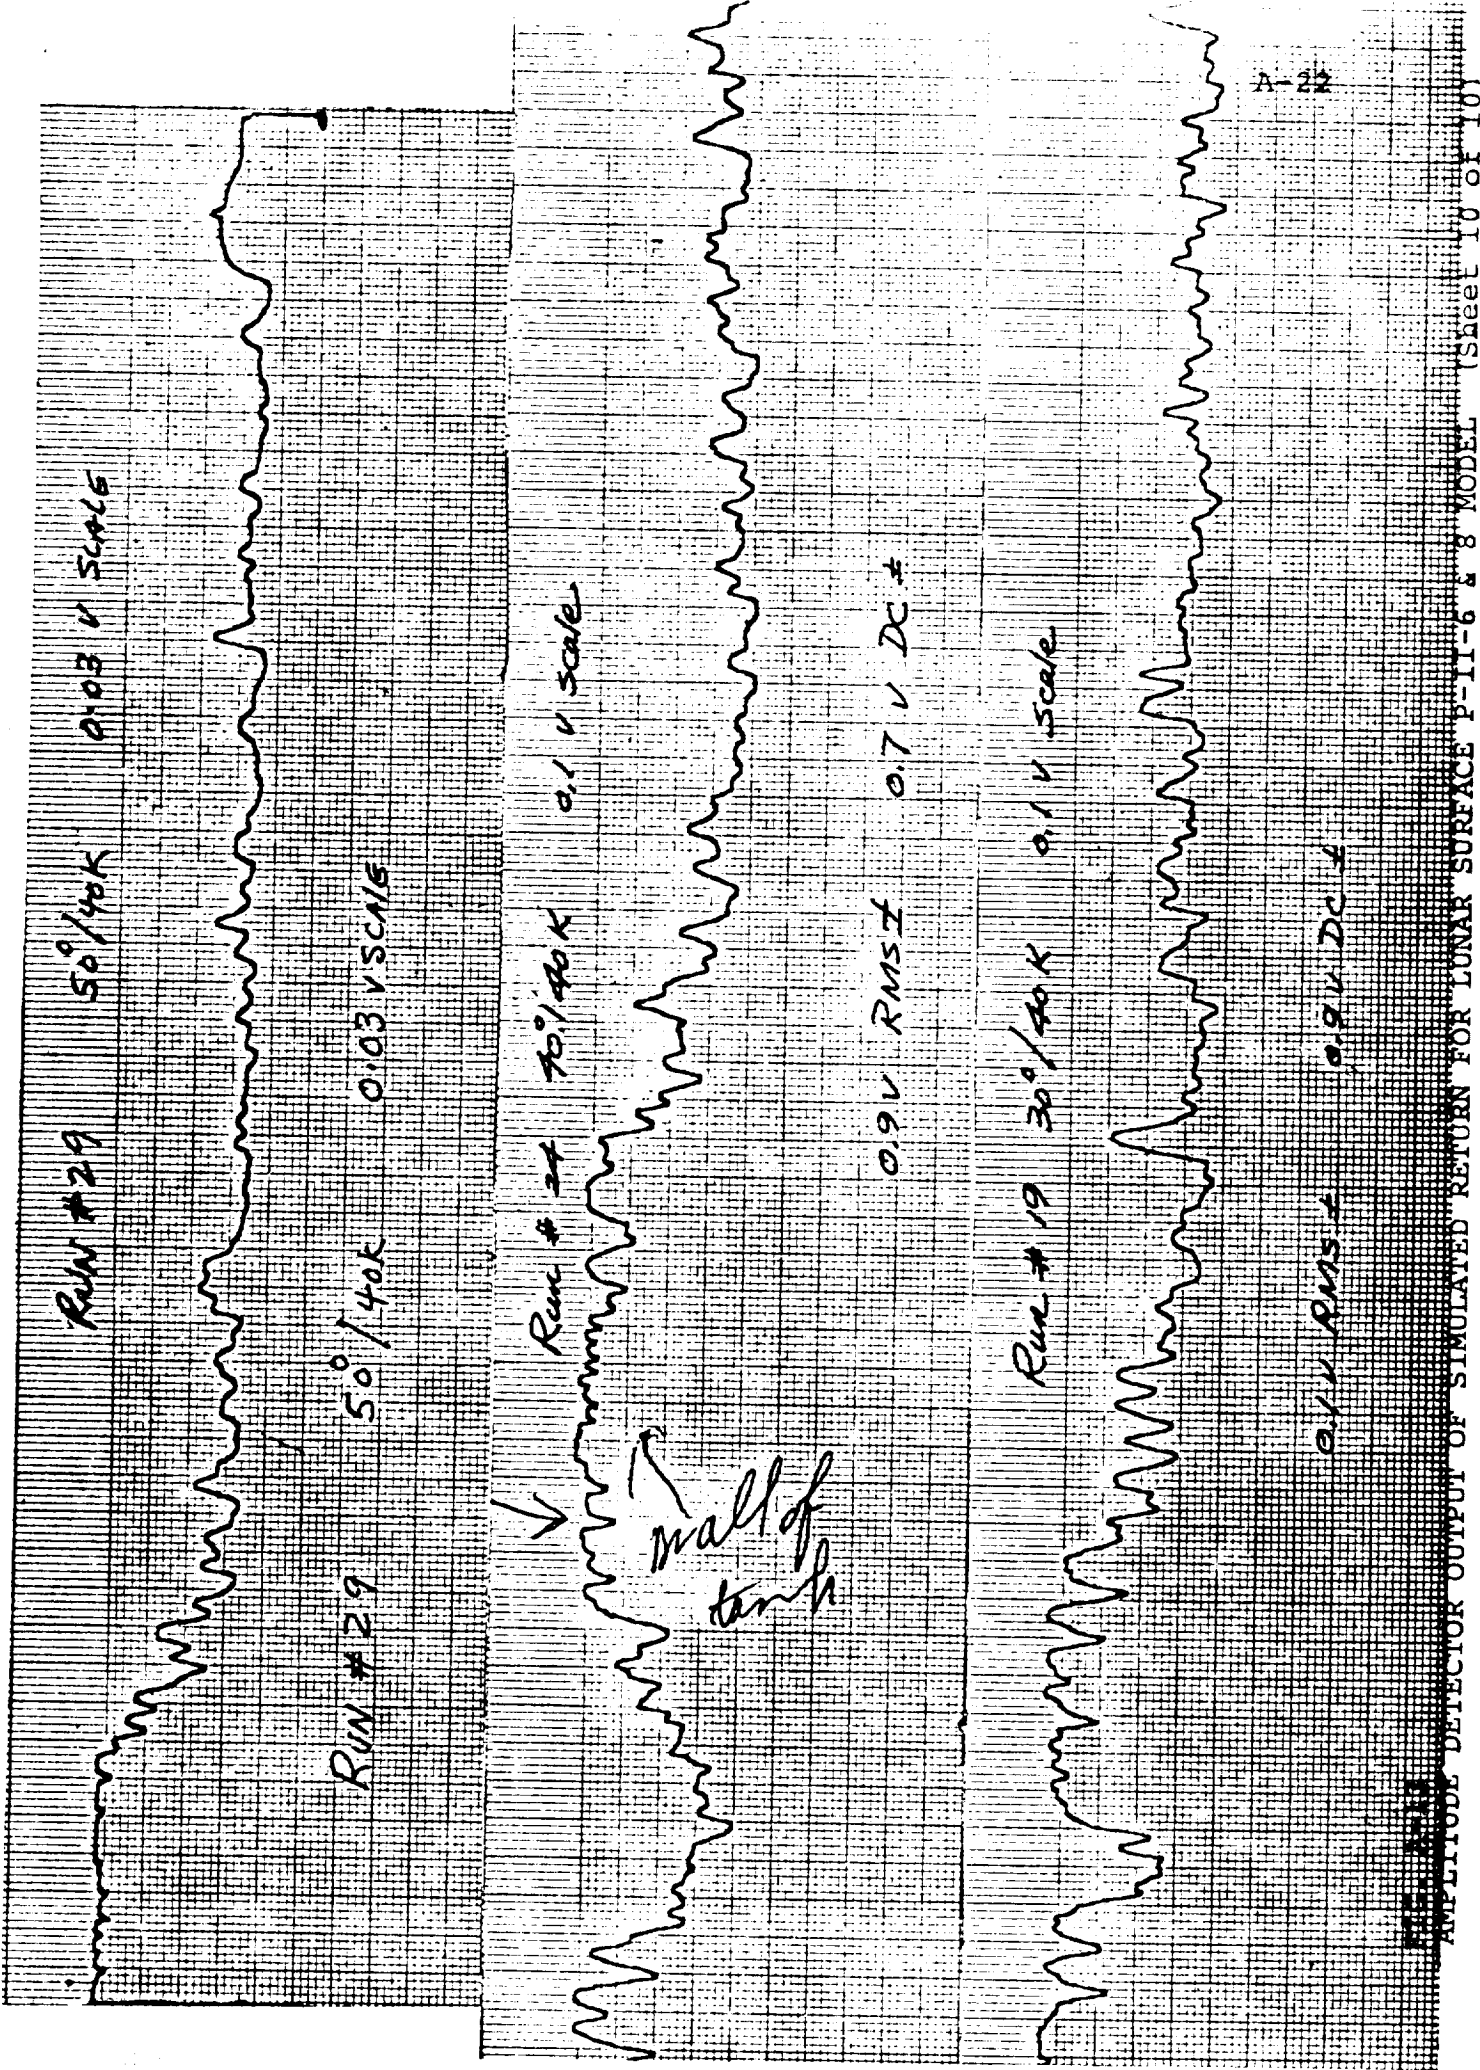 A-22
RUN #29 50°/40K 0.03 V SCALE
RUN #29 50°/40K 0.03 V SCALE
Run # 24 40°/40K 0.1 V scale
wall of
tank
0.9V RMS± 0.7 V DC ±
Run # 19 30°/40K 0.1 V scale
0.1V RMS± 0.9V DC ±
AMPLITUDE DETECTOR OUTPUT OF SIMULATED RETURN FOR LUNAR SURFACE P-II-6 & 8 MODEL (Sheet 10 of 10)